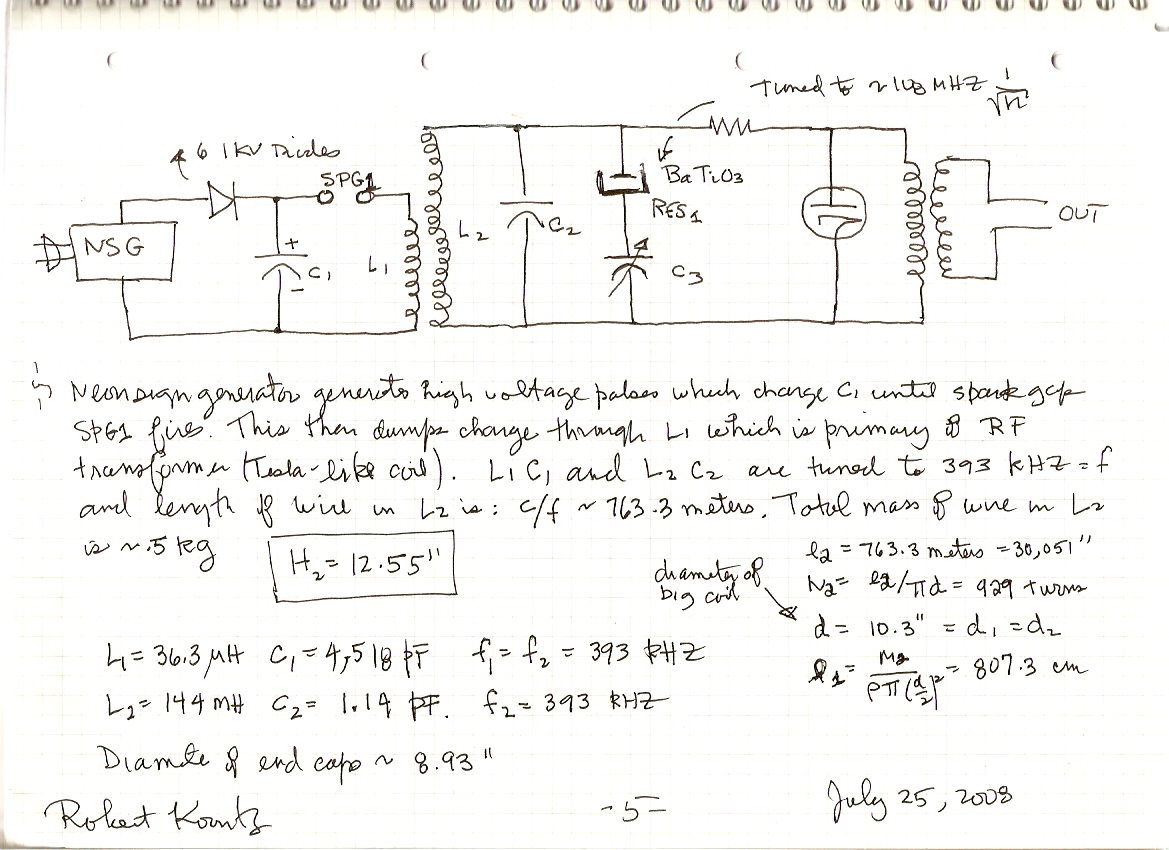 Tuned to ~ 108 MHZ 1/√n
6 1KV Diodes
SPG1
BaTiO3
RES1
NSG
+
C1
-
L1
L2
C2
C3
OUT
Neon sign generator generates high voltage pulses which charge C1 until spark gap
SPG1 fires. This then dumps charge through L1 which is primary of RF
transformer (Tesla-like coil). L1 C1 and L2 C2 are tuned to 393 kHZ = f
and length of wire in L2 is: c/f ~ 763.3 meters. Total mass of wire in L2
is ~ .5 kg
H2 = 12.55"
diameter of
big coil
l2 = 763.3 meters = 30,051"
N2 = l2/πd = 929 turns
d = 10.3" = d1 = d2
l1 = M2/ρπ(d/2)² = 807.3 cm
L1 = 36.3 μH C1 = 4,518 pF f1 = f2 = 393 kHZ
L2 = 144 mH C2 = 1.14 pF. f2 = 393 kHZ
Diamete of end caps ~ 8.93"
Robert Koontz
- 5 -
July 25, 2008